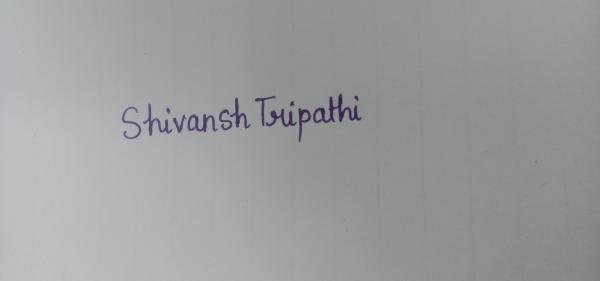 Shivansh Tripathi